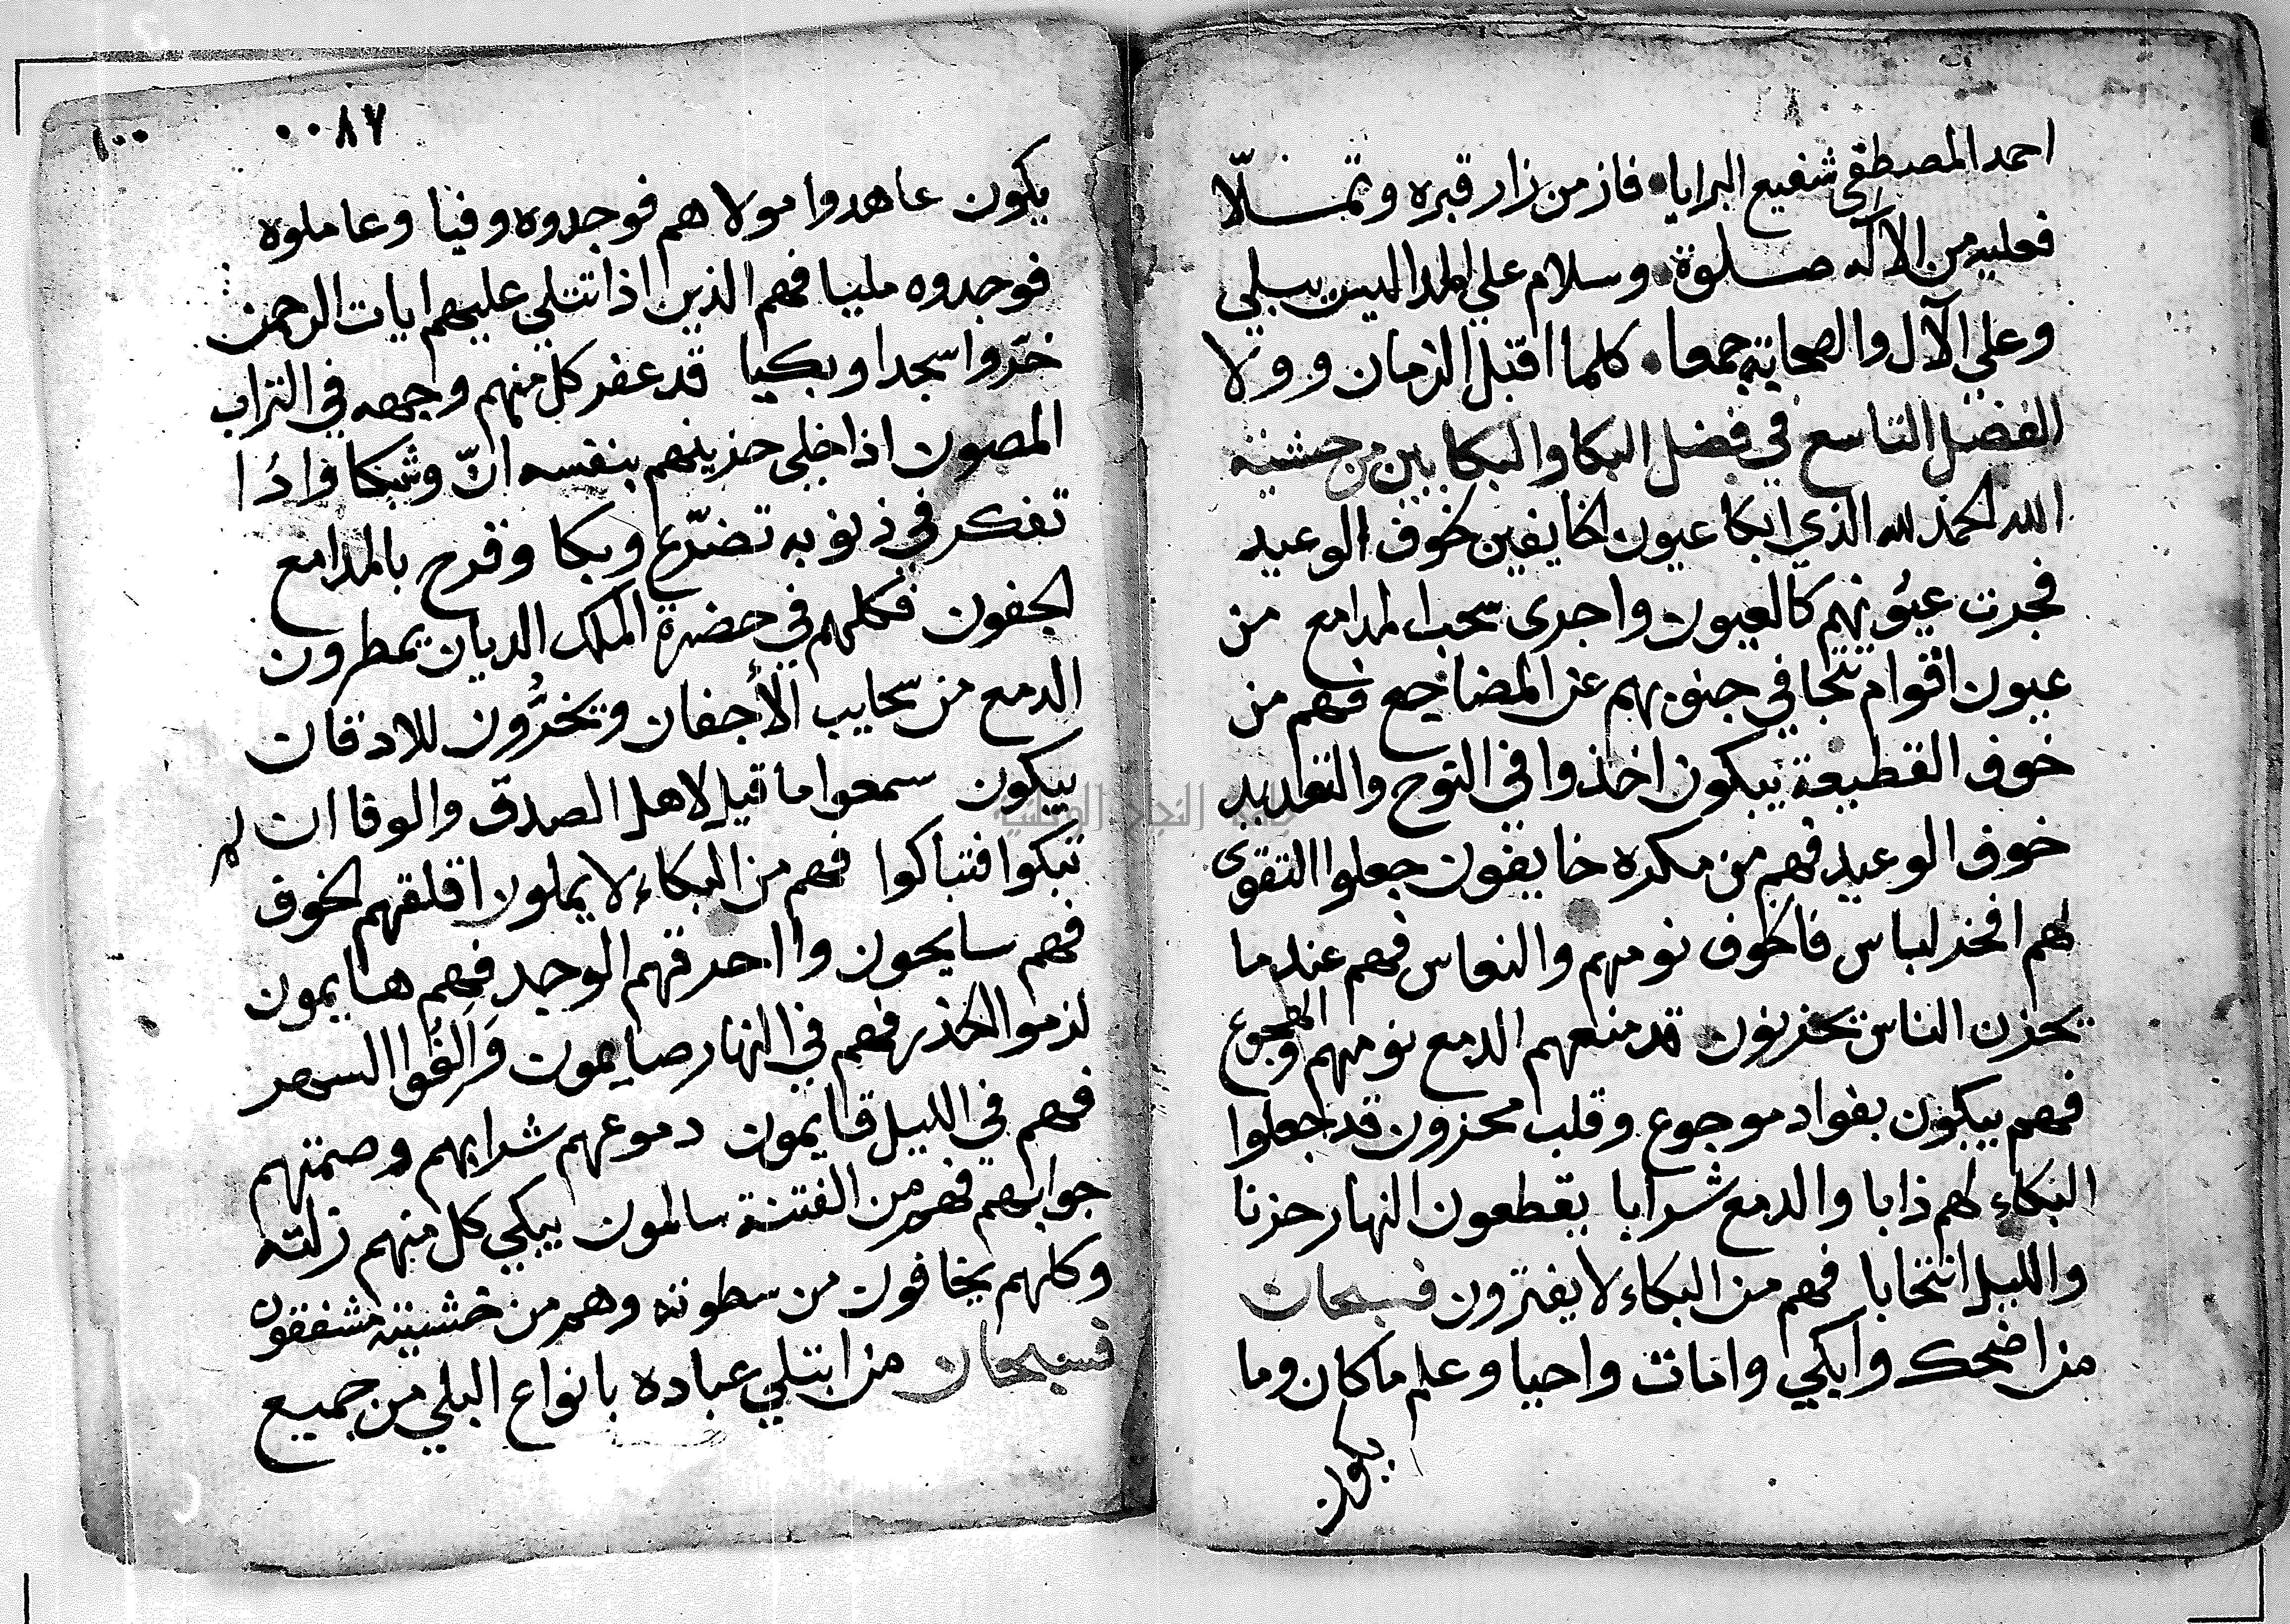 احمد المصطفى شفيع البرايا • فاز من زار قبره وتملّا
فعليه من الآله صلوة • وسلام على المدا ليس يبلي
وعلى الآل والصحابة جمعا • كلما اقبل الزمان وولا
الفصل التاسع في فضل البكا والبكايين من خشية
الله الحمد لله الذي ابكا عيون الخايفين خوف الوعيد
فجرت عيونهم كالعيون واجرى سحب المدامع من
عيون اقوام تتجافي جنوبهم عن المضاجع فهم من
خوف القطيعة يبكون اخذوا في النوح والتعديد
خوف الوعيد فهم من مكره خايفون جعلوا التقوى
لهم افخر لباس فالخوف نومهم والنعاس فهم عندما
يحزن الناس يحزنون قد منعهم الدمع نومهم والهجوع
فهم يبكون بفواد موجوع وقلب محزون قد جعلوا
البكاء لهم ذابا والدمع شرابا يقطعون النهار حزنا
والليل انتحابا فهم من البكاء لا يفترون فسبحان
من اضحك وابكي وامات واحيا وعلم ما كان وما
يكون
٠٠٨٧
١٠٠
يكون عاهدوا مولاهم فوجدوه وفيا وعاملوه
فوجدوه مليا فهم الذين اذا تتلي عليهم ايات الرحمن
خروا سجدا وبكيا قد عفر كل منهم وجهه في التراب
المصون اذا خلى حزينهم بنفسه انّ وشكا واذا
تفكر في ذنوبه تضرّع وبكا وقرح بالمدامع
الجفون فكلهم في حضرة الملك الديان يمطرون
الدمع من سحايب الأجفان ويخرّون للاذقان
يبكون سمعوا ما قيل لاهل الصدق والوفا ان لم
تبكوا فتباكوا فهم من البكاء لا يملون اقلقهم الخوف
فهم سايحون واحرقهم الوجد فهم هايمون
لزموا الحذر فهم في النهار صايمون وَالِفُوا السهر
فهم في الليل قايمون دموعهم شرابهم وصمتهم
جوابهم فهم من الفتنة سالمون يبكي كل منهم زلته
وكلهم يخافون من سطوته وهم من خشيته مشفقون
فسبحان من ابتلي عباده بانواع البلي من جميع